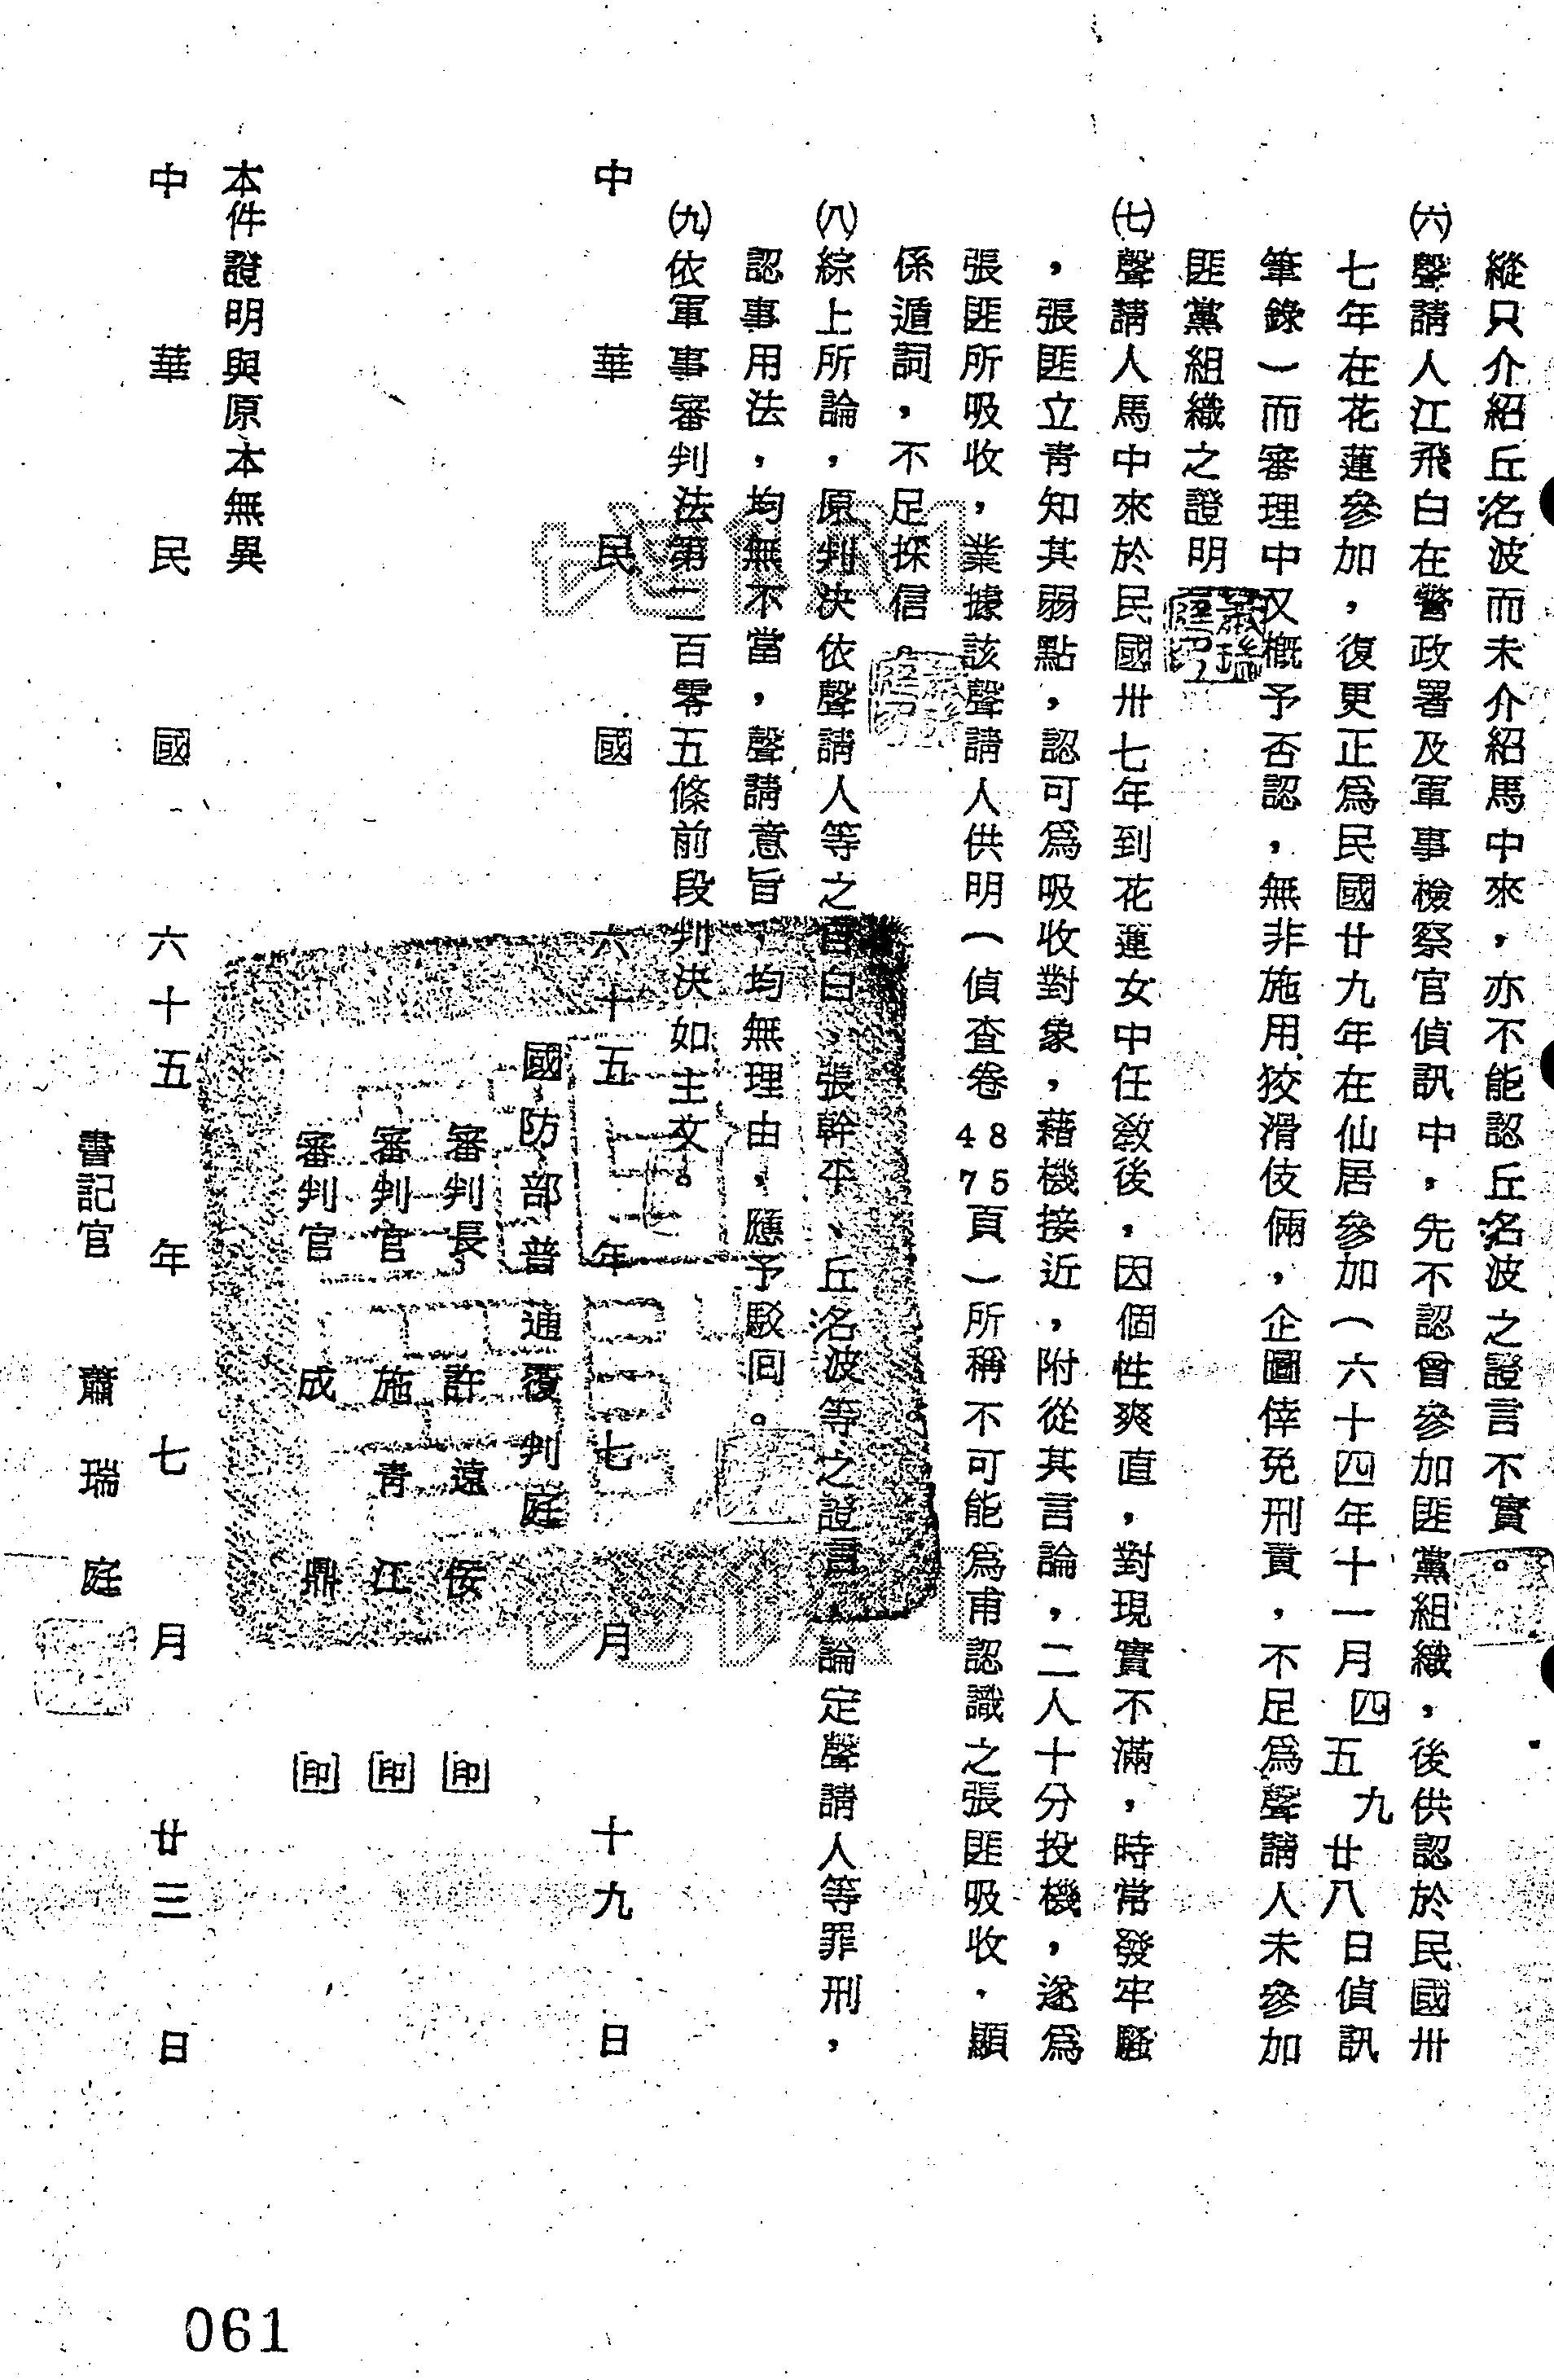 縱只介紹丘名波而未介紹馬中來，亦不能認丘名波之證言不實。
㈥聲請人江飛白在警政署及軍事檢察官偵訊中，先不認曾參加匪黨組織，後供認於民國卅
七年在花蓮參加，復更正為民國廿九年在仙居參加（六十四年十一月四五九廿八日偵訊
筆錄）而審理中又概予否認，無非施用狡滑伎倆，企圖倖免刑責，不足為聲請人未參加
匪黨組織之證明
㈦聲請人馬中來於民國卅七年到花蓮女中任教後，因個性爽直，對現實不滿，時常發牢騷
，張匪立青知其弱點，認可為吸收對象，藉機接近，附從其言論，二人十分投機，遂為
張匪所吸收，業據該聲請人供明（偵查卷4875頁）所稱不可能為甫認識之張匪吸收．顯
係遁詞，不足採信。
㈧綜上所論，原判決依聲請人等之自白、張幹平、丘名波等之證言，論定聲請人等罪刑，
認事用法，均無不當，聲請意旨，均無理由，應予駁回。
㈨依軍事審判法第二百零五條前段判決如主文。
中華民國六十五年七月十九日
國防部普通覆判庭
審判長 許遠 印
審判官 施青江 印
審判官 成鼎 印
本件證明與原本無異
中華民國六十五年七月廿三日
書記官 蕭瑞庭
061